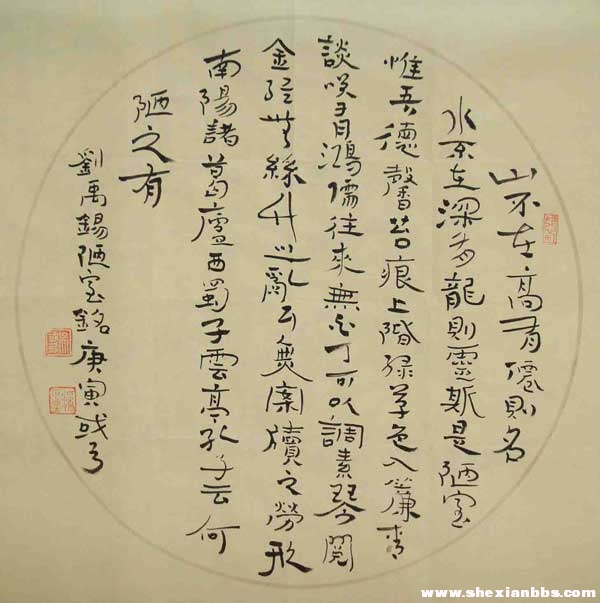 山不在高有僊則名
水不在深有龍則靈斯是陋室
惟吾德馨苔痕上階綠草色入簾青
談咲有鴻儒往來無白丁可以調素琴閱
金經無絲竹之亂耳無案牘之勞形
南陽諸葛廬西蜀子雲亭孔子云何
陋之有
劉禹錫陋室銘庚寅
www.shexianbbs.com